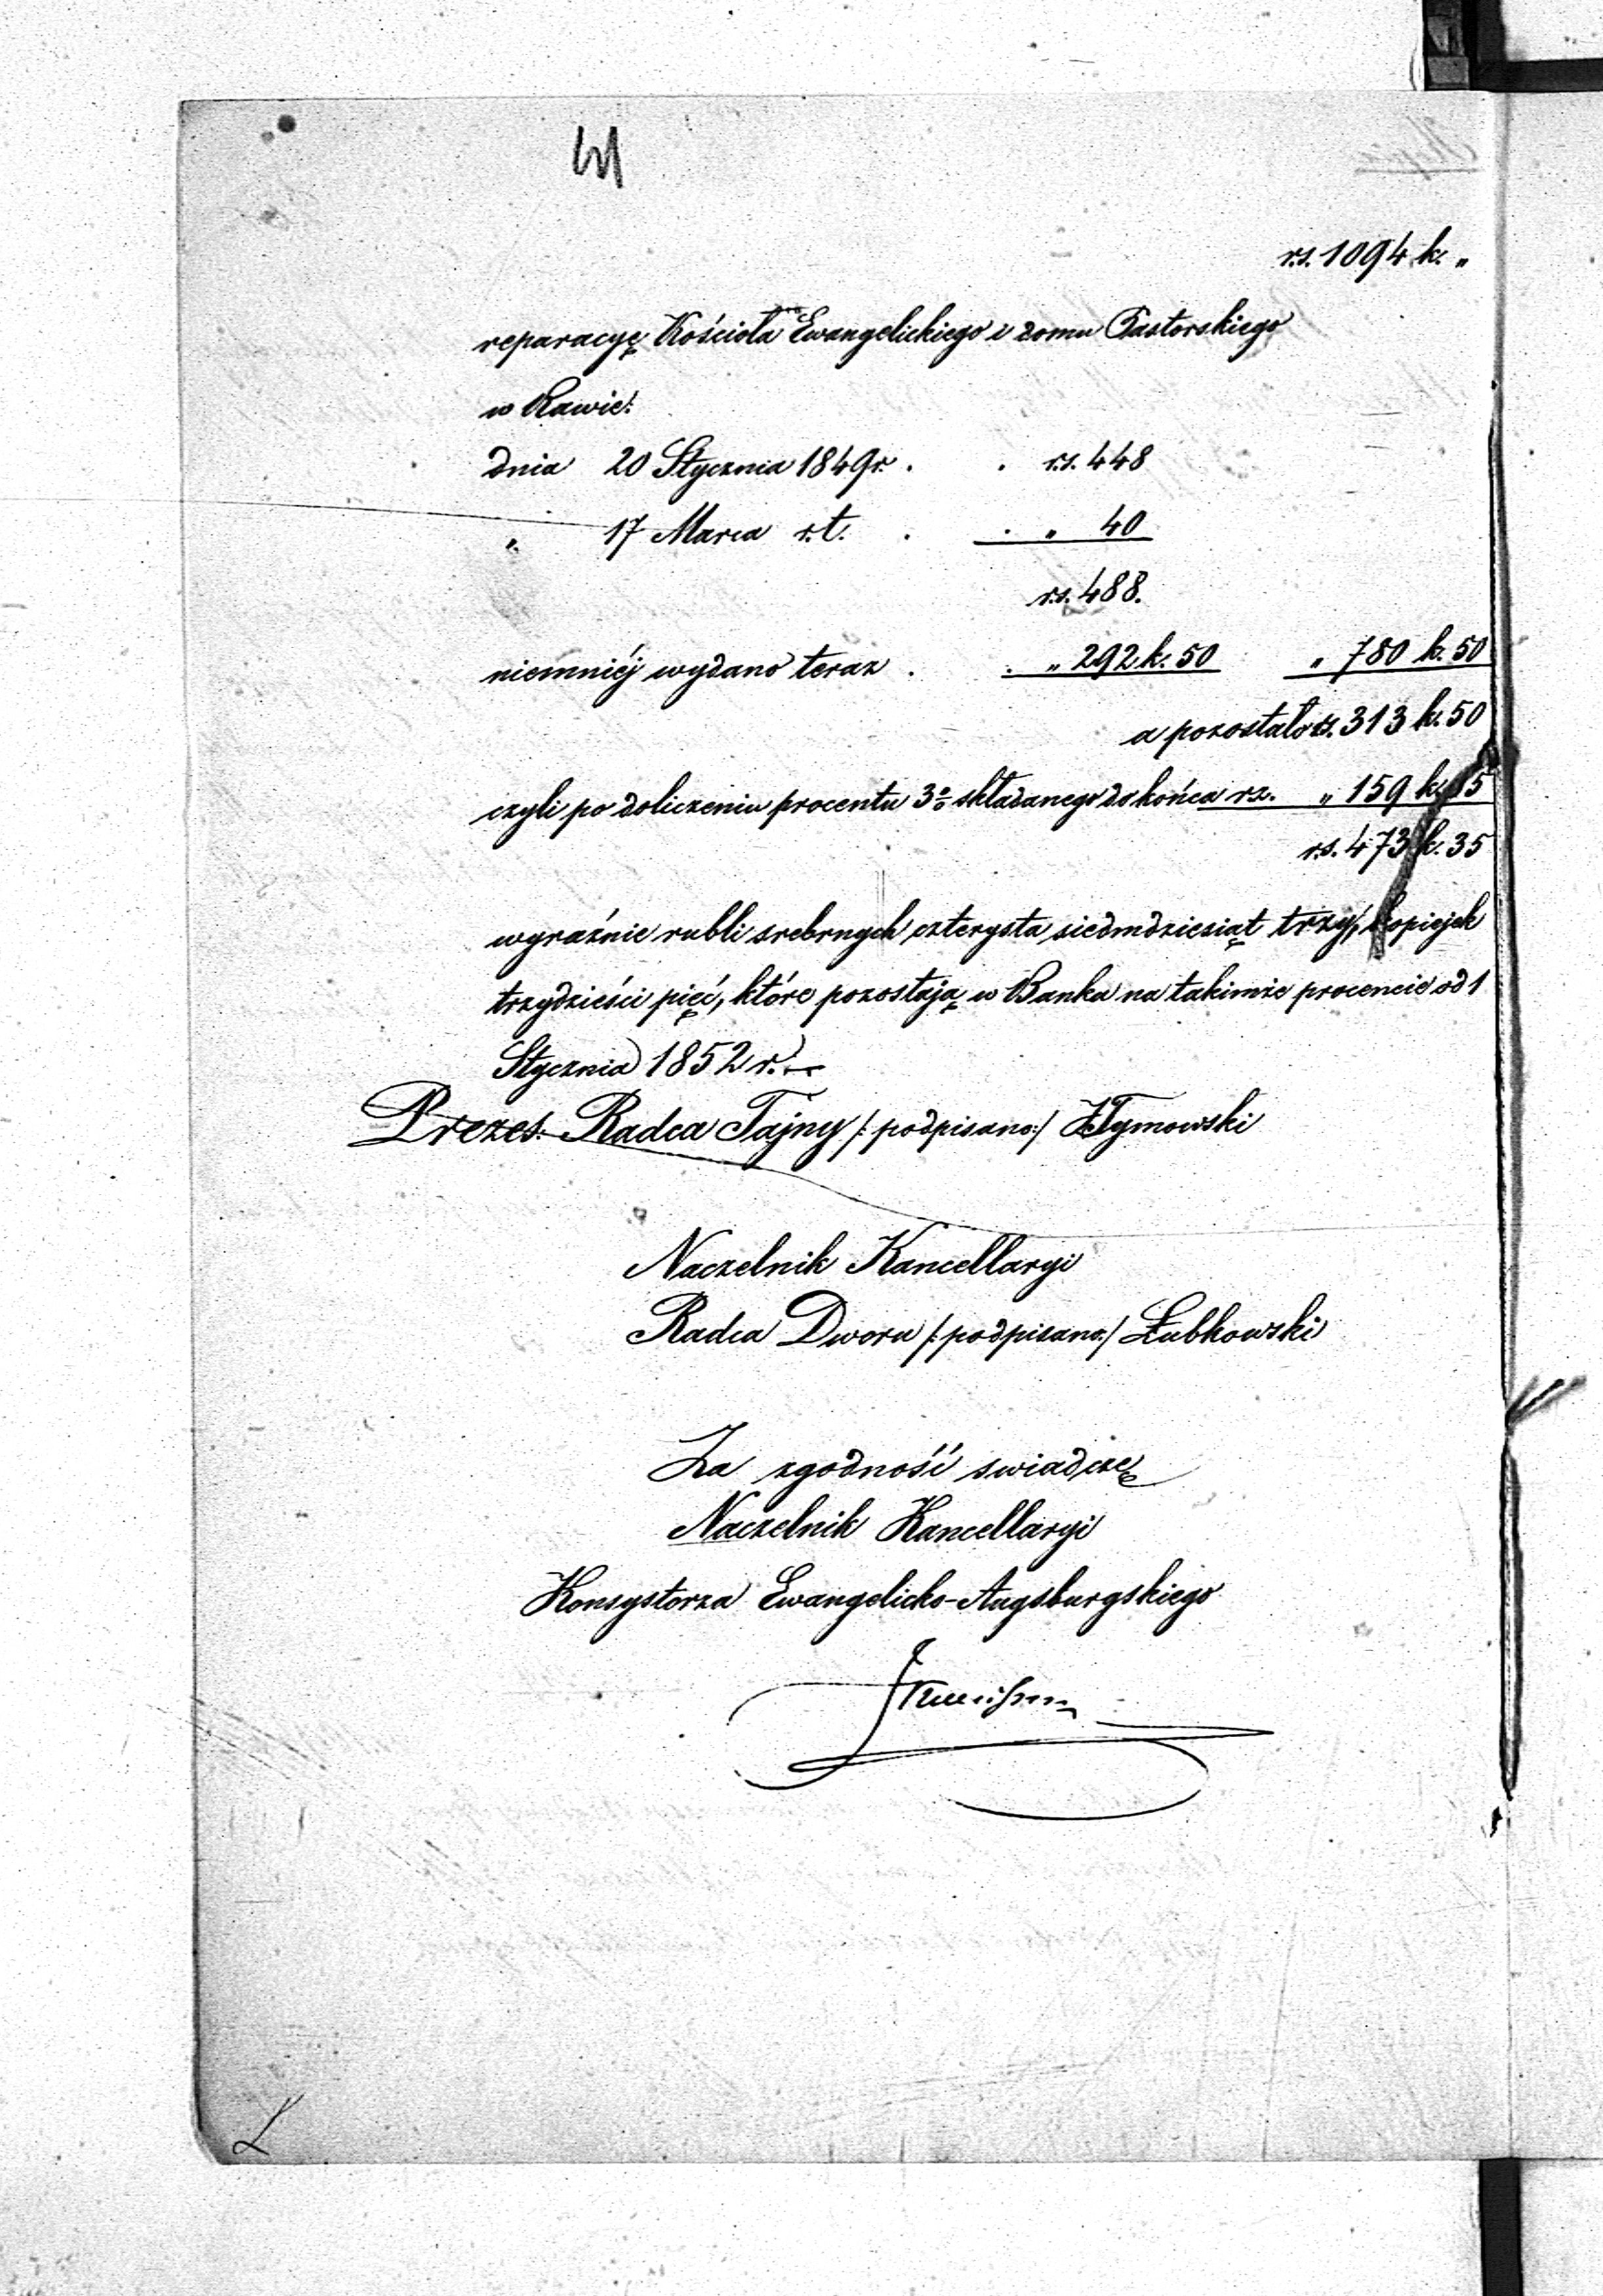 rs. 1094 k. „
reparacyę Kościoła Ewangelickiego i domu Pastorskiego
w Rawie:
dnia 20 Stycznia 1849 r. . . rs. 448
„ 17 Marca r.t. . . „ 40
rs. 488.
niemniéj wydano teraz . . „ 292 k. 50 „ 780 k. 50
a pozostało rs. 313 k. 50
czyli po doliczeniu procentu 3% składanego do końca rz. „ 159 k. 85
rs. 473 k. 35
wyraźnie rubli srebrnych czterysta siedmdziesiąt trzy, kopiejek
trzydzieści pięć, które pozostają w Banku na takimże procencie od 1
Stycznia 1852 r.
Prezes: Radca Tajny /: podpisano :/ Tymowski
Naczelnik Kancellaryi
Radca Dworu /: podpisano :/ Łubkowski
Za zgodność swiadczę
Naczelnik Kancellaryi
Konsystorza Ewangelicko-Augsburgskiego